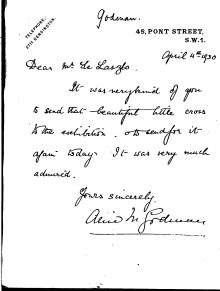 Godman.
TELEPHONE:
45, PONT STREET,
S.W.1.
April 4th 1930
Dear Mr de Laszlo.
It was very kind of you
to send that beautiful little cross
to the exhibition. & to send for it
again today. It was very much
admired.
Yours sincerely.
Alice M Godman